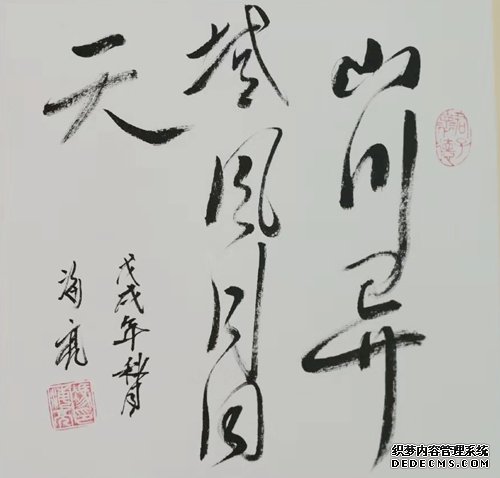 山川异
域风月同
天
戊戌年秋月
海亮
织梦内容管理系统
DEDECMS.COM